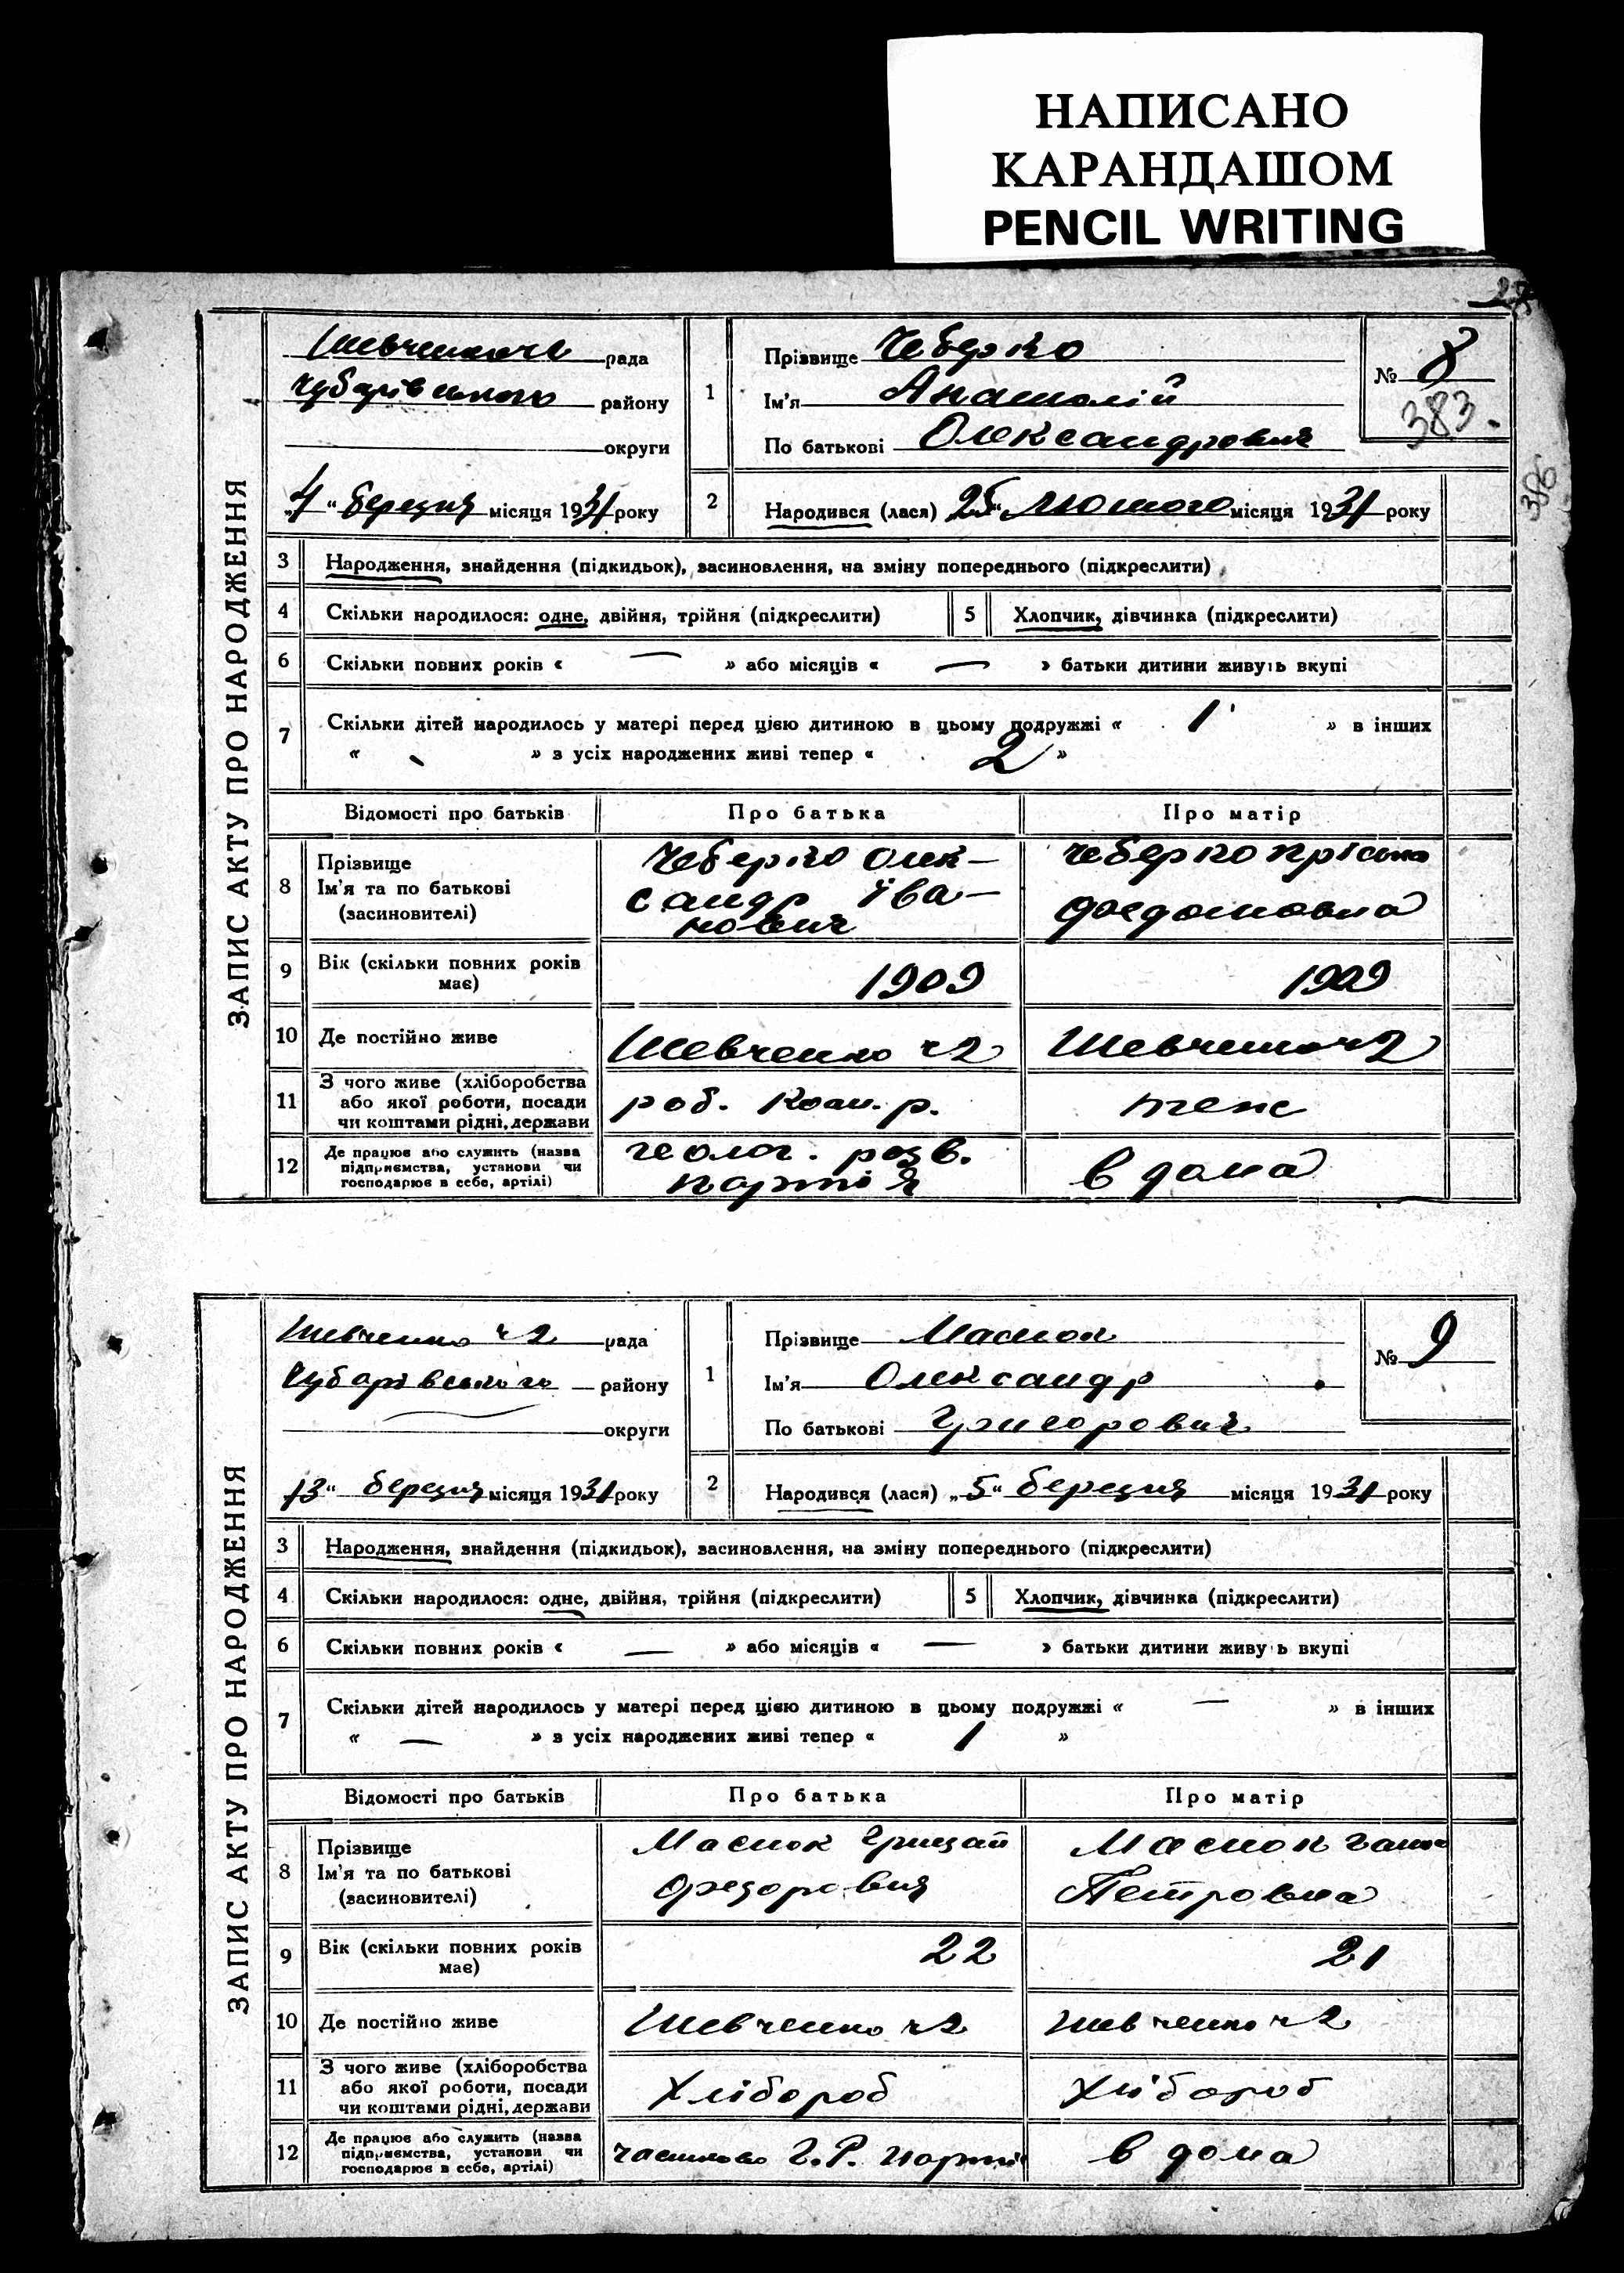 НАПИСАНО
КАРАНДАШОМ
PENCIL WRITING
ЗАПИС АКТУ ПРО НАРОДЖЕННЯ
рада
Чубарівського району
округи
„4“ березня місяця 1931 року
1
Прізвище Чеберко
Ім'я Анатолій
По батькові Олександрович
№ 8
383.
386
2
Народився (лася) „25“ Лютого місяця 1931 року
3 Народження, знайдення (підкидьок), засиновлення, на зміну попереднього (підкреслити)
4 Скільки народилося: одне, двійня, трійня (підкреслити) 5 Хлопчик, дівчинка (підкреслити)
6 Скільки повних років « — » або місяців « — » батьки дитини живуть вкупі
7 Скільки дітей народилось у матері перед цією дитиною в цьому подружжі « 1 » в інших
« » з усіх народжених живі тепер « 2 »
Відомості про батьків Про батька Про матір
8 Прізвище
Ім'я та по батькові
(засиновителі)
Чеберко Олек-
сандр Іва-
нович
Чеберко
9 Вік (скільки повних років
має)
1909 1909
10 Де постійно живе Шевченко ч2 Шевченко ч2
11 З чого живе (хліборобства
або якої роботи, посади
чи коштами рідні, держави
роб.
12 Де працює або служить (назва
підприємства, установи чи
господарює в себе, артілі)
геолог. розв.
партія
в дома
ЗАПИС АКТУ ПРО НАРОДЖЕННЯ
Шевченко ч2 рада
Чубарівського району
округи
„13“ березня місяця 1931 року
1
Прізвище
Ім'я Олександр
По батькові Григорович
№ 9
2
Народився (лася) „5“ березня місяця 1931 року
3 Народження, знайдення (підкидьок), засиновлення, на зміну попереднього (підкреслити)
4 Скільки народилося: одне, двійня, трійня (підкреслити) 5 Хлопчик, дівчинка (підкреслити)
6 Скільки повних років « — » або місяців « — » батьки дитини живуть вкупі
7 Скільки дітей народилось у матері перед цією дитиною в цьому подружжі « — » в інших
« — » з усіх народжених живі тепер « 1 »
Відомості про батьків Про батька Про матір
8 Прізвище
Ім'я та по батькові
(засиновителі)
Петровна
9 Вік (скільки повних років
має)
22 21
10 Де постійно живе Шевченко ч2 Шевченко ч2
11 З чого живе (хліборобства
або якої роботи, посади
чи коштами рідні, держави
Хлібороб Хлібороб
12 Де працює або служить (назва
підприємства, установи чи
господарює в себе, артілі)
Г.Р. партії
в дома